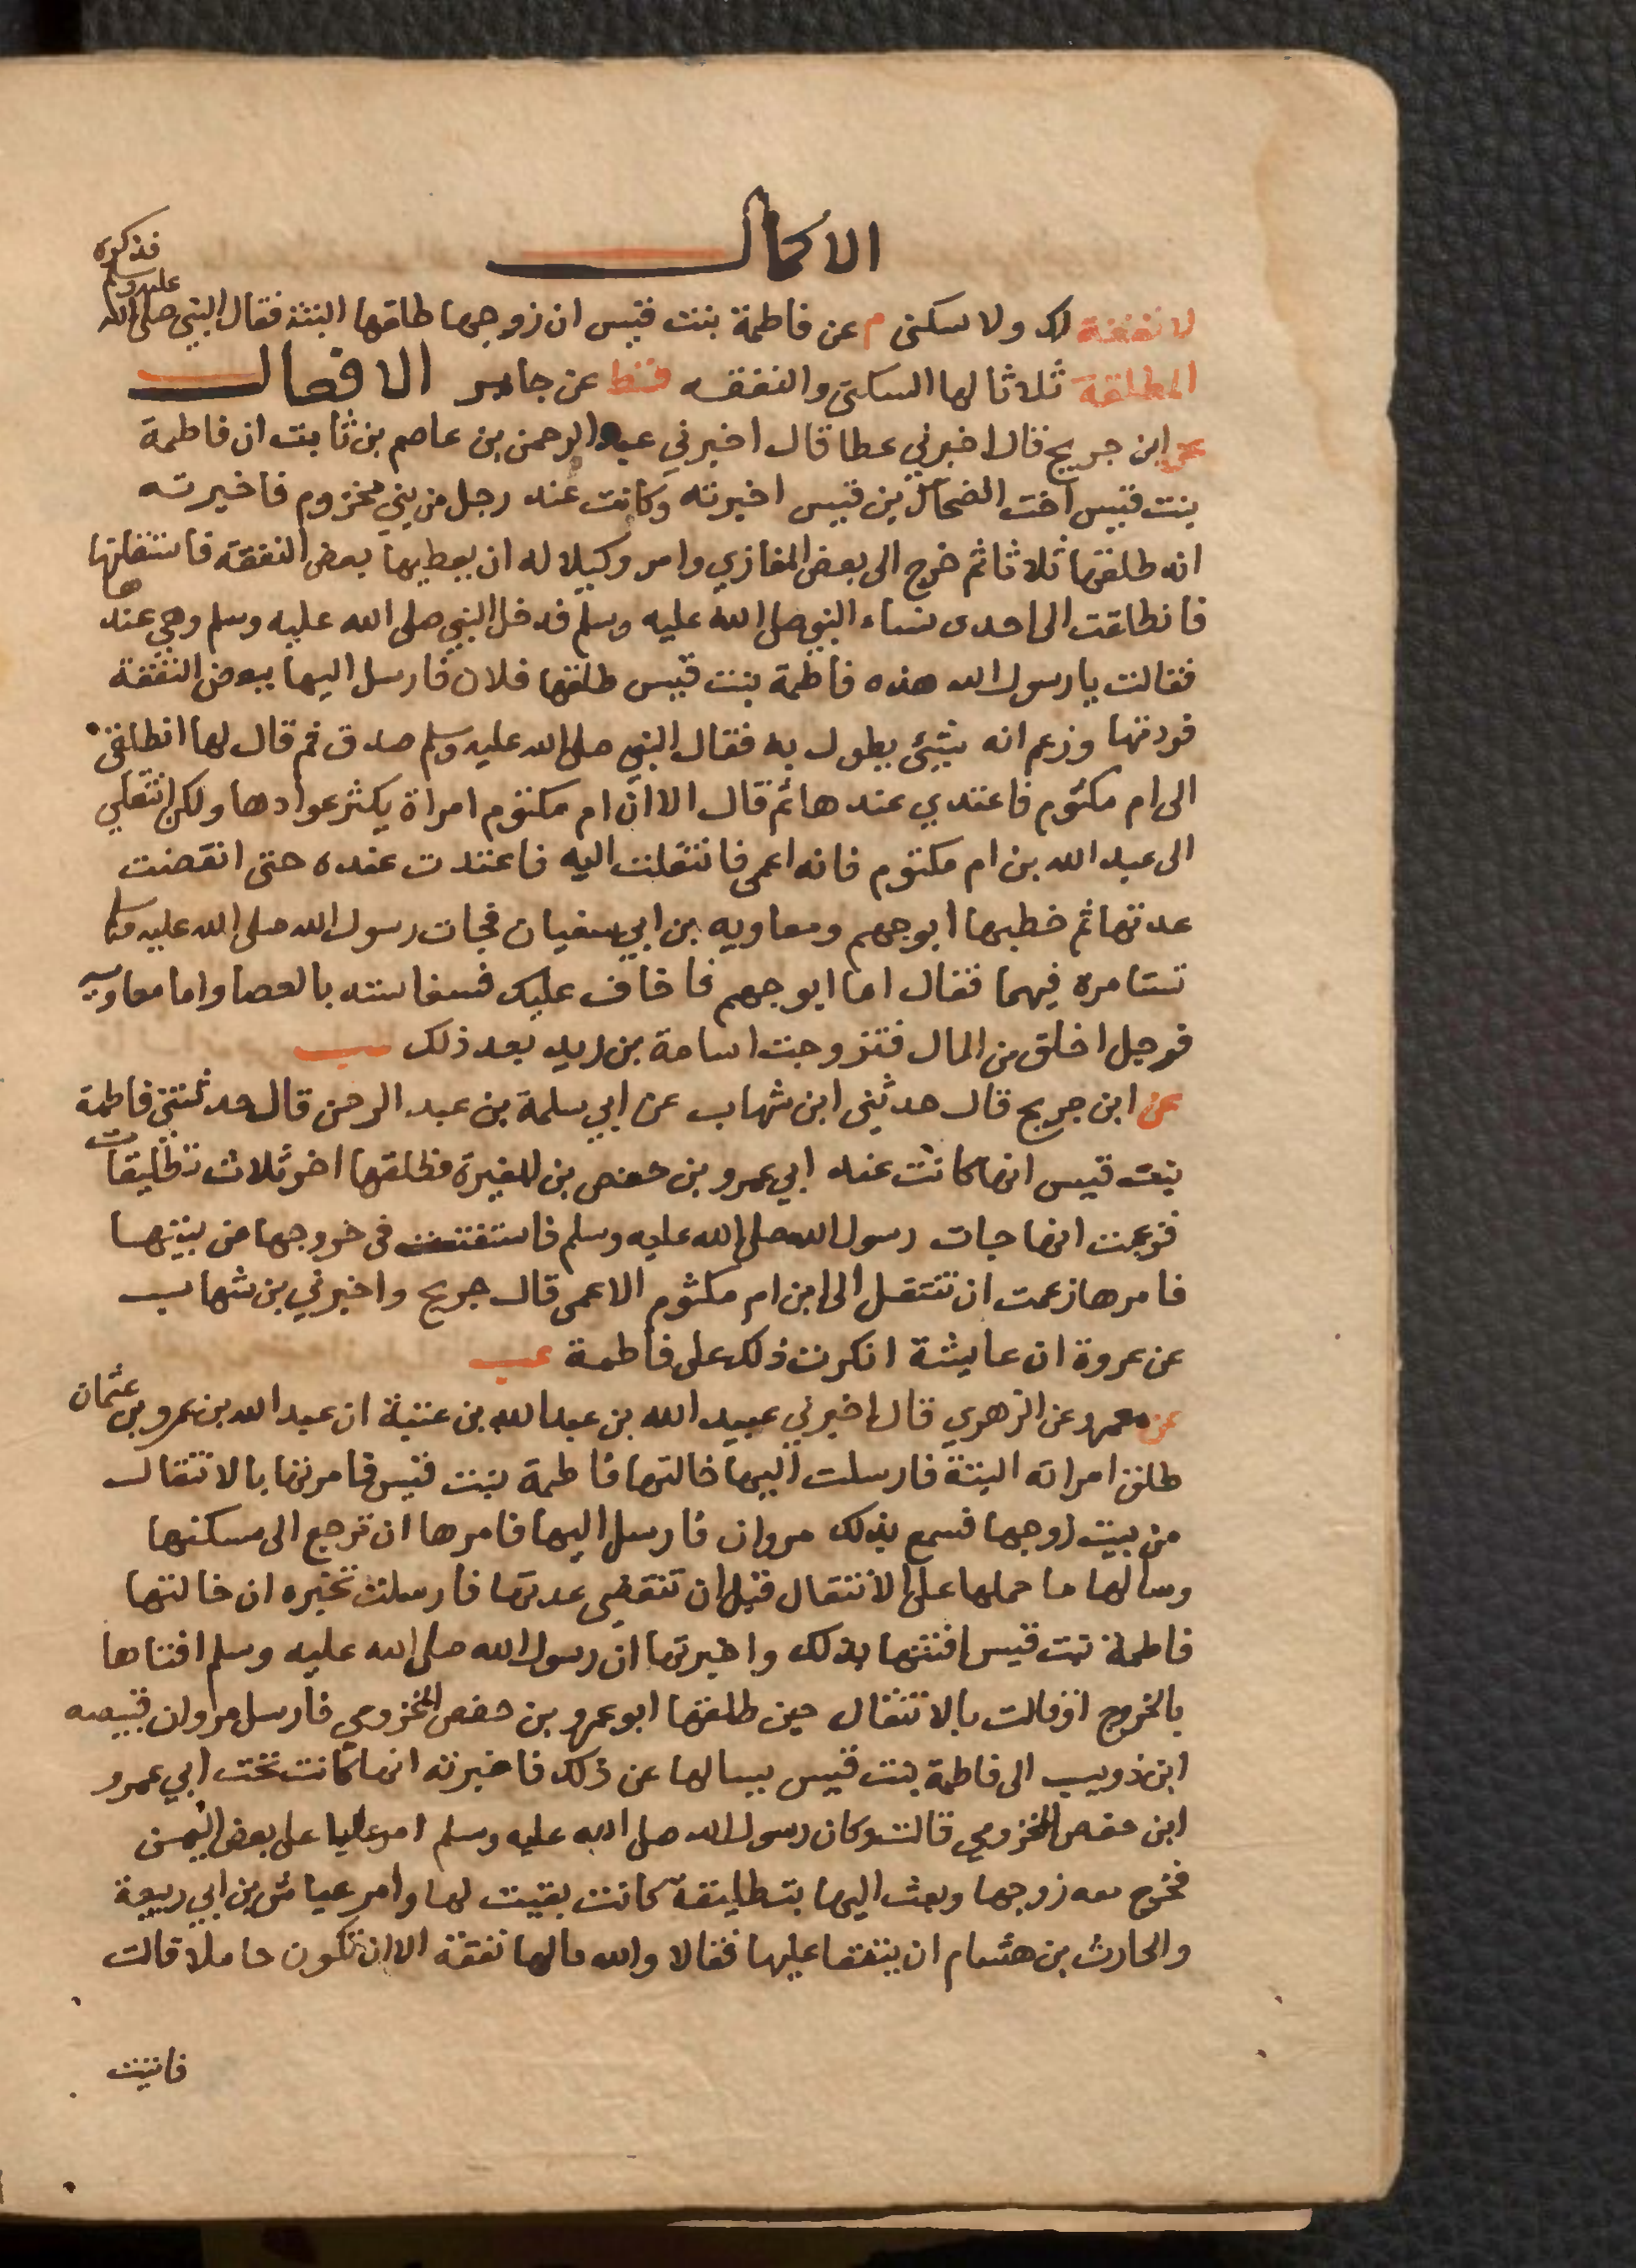 الاكمال
لا نفقة لك ولا سكنى م عن فاطمة بنت قيس ان زوجها طلقها البتة فقال النبي صلى الله
عليه وسلم
فذكره
المطلقة ثلاثا لها السكنى والنفقه قط عن جابر الافعال
عن ابن جريج قال اخبرني عطا قال اخبرني عبد الرحمن بن عاصم بن ثابت ان فاطمة
بنت قيس اخت الضحاك بن قيس اخبرته وكانت عند رجل من بني مخزوم فاخبرته
انه طلقها ثلاثا ثم خرج الى بعض المغازي وامر وكيلا له ان يعطيها بعض النفقة فاستقلتها
فانطلقت الى احدى نساء النبي صلى الله عليه وسلم فدخل النبي صلى الله عليه وسلم وهي عندها
فقالت يا رسول الله هذه فاطمة بنت قيس طلقها فلان فارسل اليها ببعض النفقة
فردتها وزعم انه شيئ يطول به فقال النبي صلى الله عليه وسلم صدق ثم قال لها انطلقي
الى ام مكتوم فاعتدي عندها ثم قال الا ان ام مكتوم امراة يكثر عوادها ولكن انتقلي
الى عبد الله بن ام مكتوم فانه اعمى فانتقلت اليه فاعتدت عنده حتى انقضت
عدتها ثم خطبها ابو جهم ومعاويه بن ابي سفيان فجات رسول الله صلى الله عليه وسلم
تستامره فيهما فقال اما ابو جهم فاخاف عليك قسقاسته بالعصا واما معاويه
فرجل اخلق من المال فتزوجت اسامة بن زيد بعد ذلك عب
عن ابن جريج قال حدثني ابن شهاب عن ابي سلمة بن عبد الرحمن قال حدثتني فاطمة
بنت قيس انها كانت عند ابي عمرو بن حفص بن المغيرة فطلقها اخر ثلاث تطليقات
فزعمت انها جات رسول الله صلى الله عليه وسلم فاستفتته في خروجها من بيتها
فامرها زعمت ان تنتقل الى ابن ام مكتوم الاعمى قال جريج واخبرني بن شهاب
عن عروة ان عايشة انكرت ذلك على فاطمة عب
عن معمر عن الزهري قال اخبرني عبيد الله بن عبد الله بن عتبة ان عبد الله بن عمرو بن عثمان
طلق امراته البتة فارسلت اليها خالتها فاطمة بنت قيس فامرتها بالانتقال
من بيت زوجها فسمع بذلك مروان فارسل اليها فامرها ان ترجع الى مسكنها
وسالها ما حملها على الانتقال قبل ان تنقضي عدتها فارسلت تخبره ان خالتها
فاطمة بنت قيس افتتها بذلك واخبرتها ان رسول الله صلى الله عليه وسلم افتاها
بالخروج اوقالت بالانتقال حين طلقها ابو عمرو بن حفص المخزومي فارسل مروان قبيصه
ابن ذويب الى فاطمة بنت قيس يسالها عن ذلك فاخبرته انها كانت تحت ابي عمرو
ابن حفص المخزومي قالت وكان رسول الله صلى الله عليه وسلم امر عليا على بعض اليمن
فخرج معه زوجها وبعث اليها بتطليقة كانت بقيت لها وامر عياش بن ابي ربيعة
والحارث بن هشام ان ينفقا عليها فقالا والله مالها نفقة الا ان تكون حاملا قالت
فاتيت